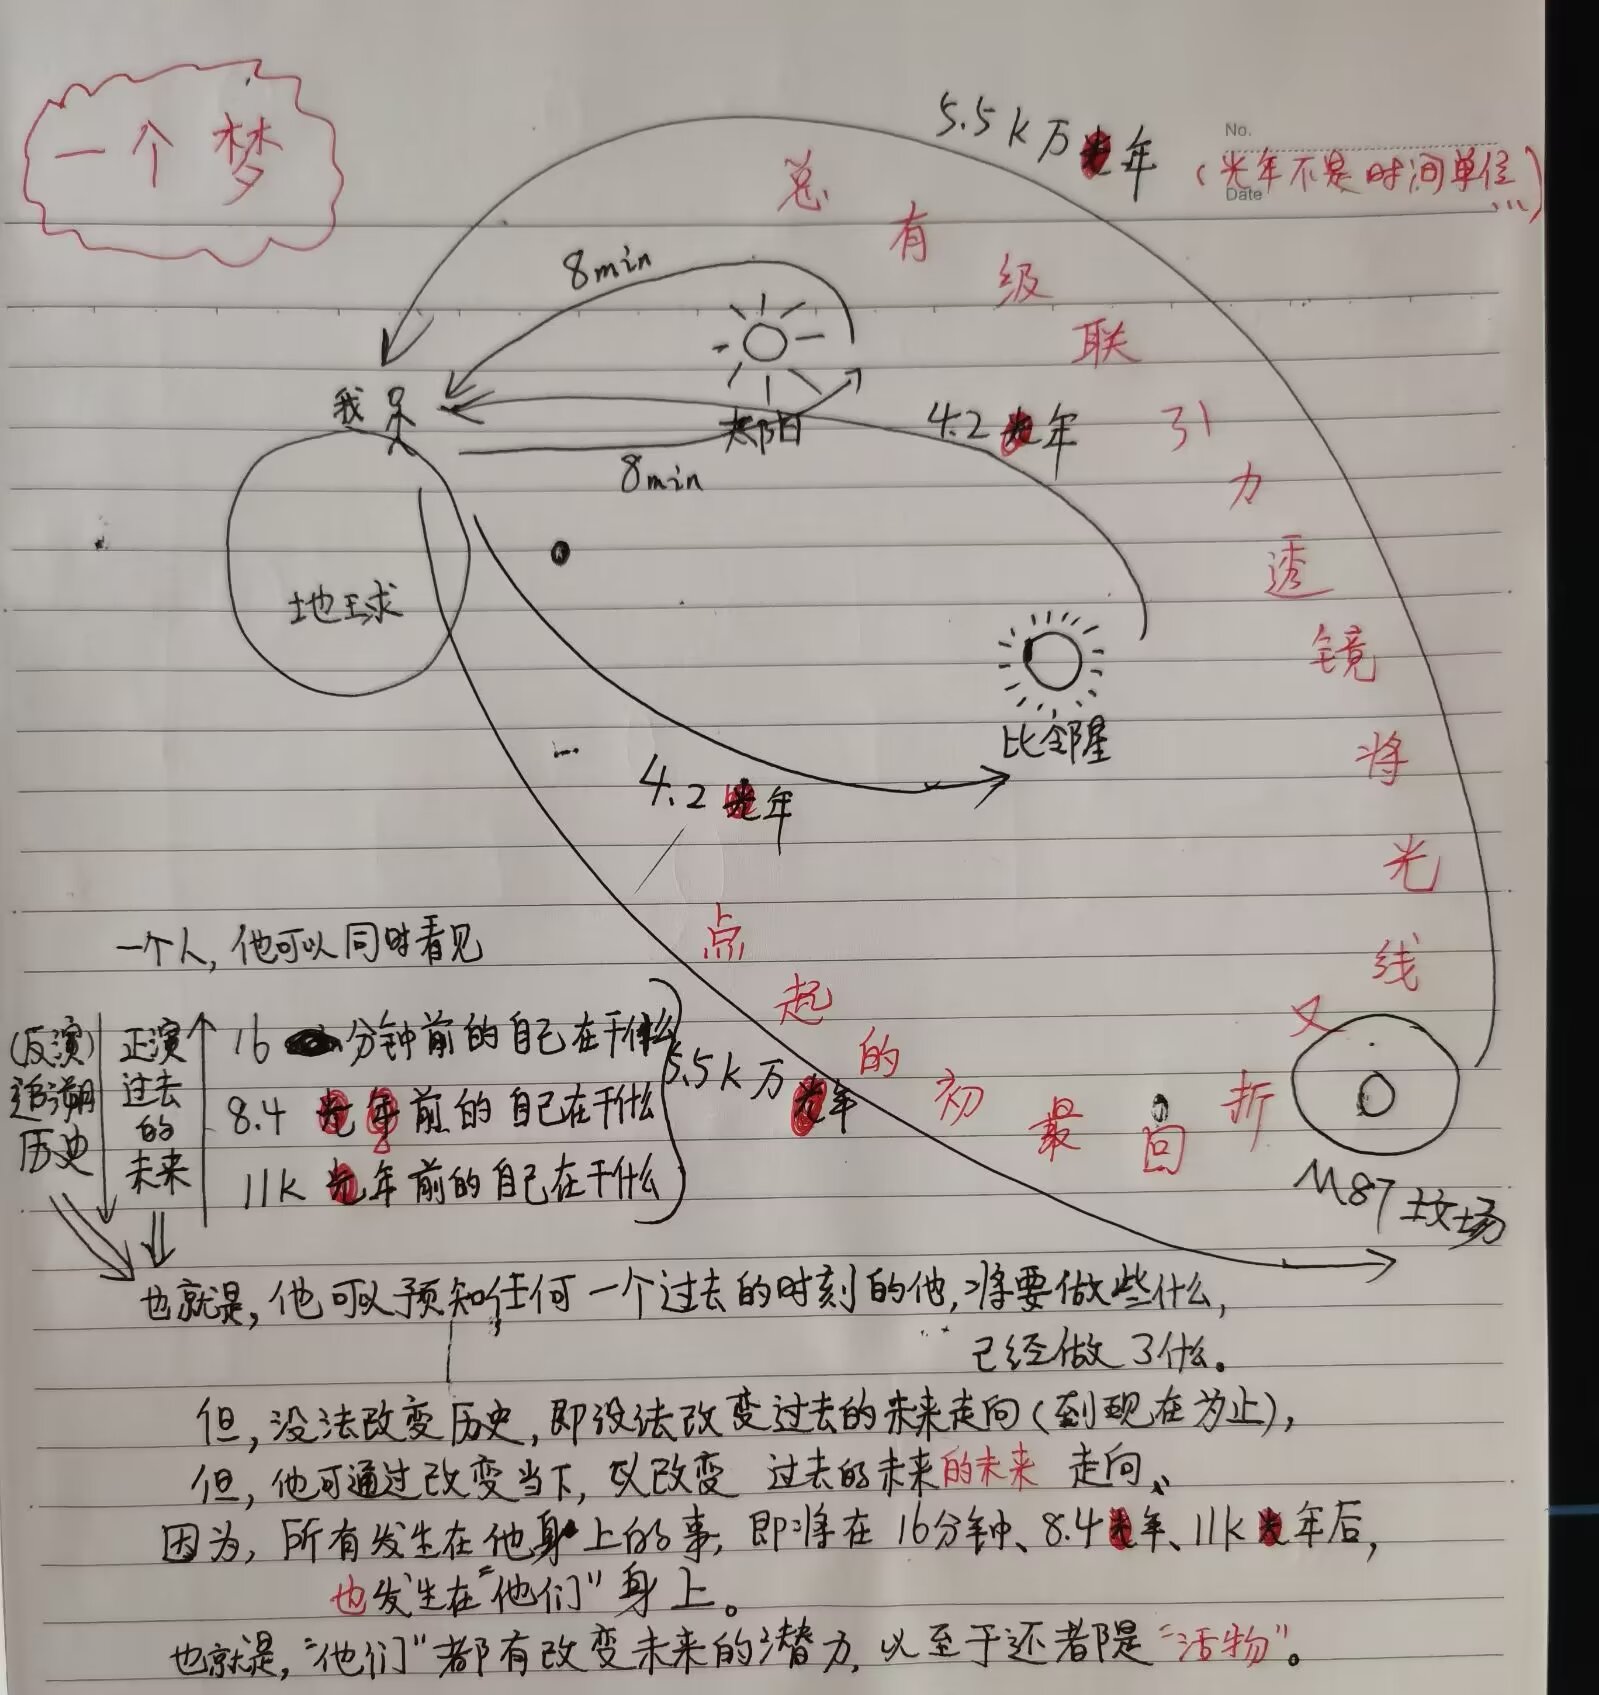 一个梦
5.5k万年
No.
(光年不是时间单位...)
Date
总有级联引力透镜将光线又折回最初的起点
8min
太阳
8min
我
4.2年
地球
比邻星
4.2年
一个人,他可以同时看见
(反演)追溯历史
正演过去的未来
16分钟前的自己在干什么
8.4年前的自己在干什么
11k年前的自己在干什么
5.5k万年
M87 坟场
也就是,他可以预知任何一个过去的时刻的他,将要做些什么,
已经做了什么。
但,没法改变历史,即没法改变过去的未来走向(到现在为止),
但,他可通过改变当下,以改变 过去的未来的未来 走向、
因为,所有发生在他身上的事,即将在16分钟、8.4年、11k年后,
也发生在“他们”身上。
也就是,“他们”都有改变未来的潜力,以至于还都是“活物”。